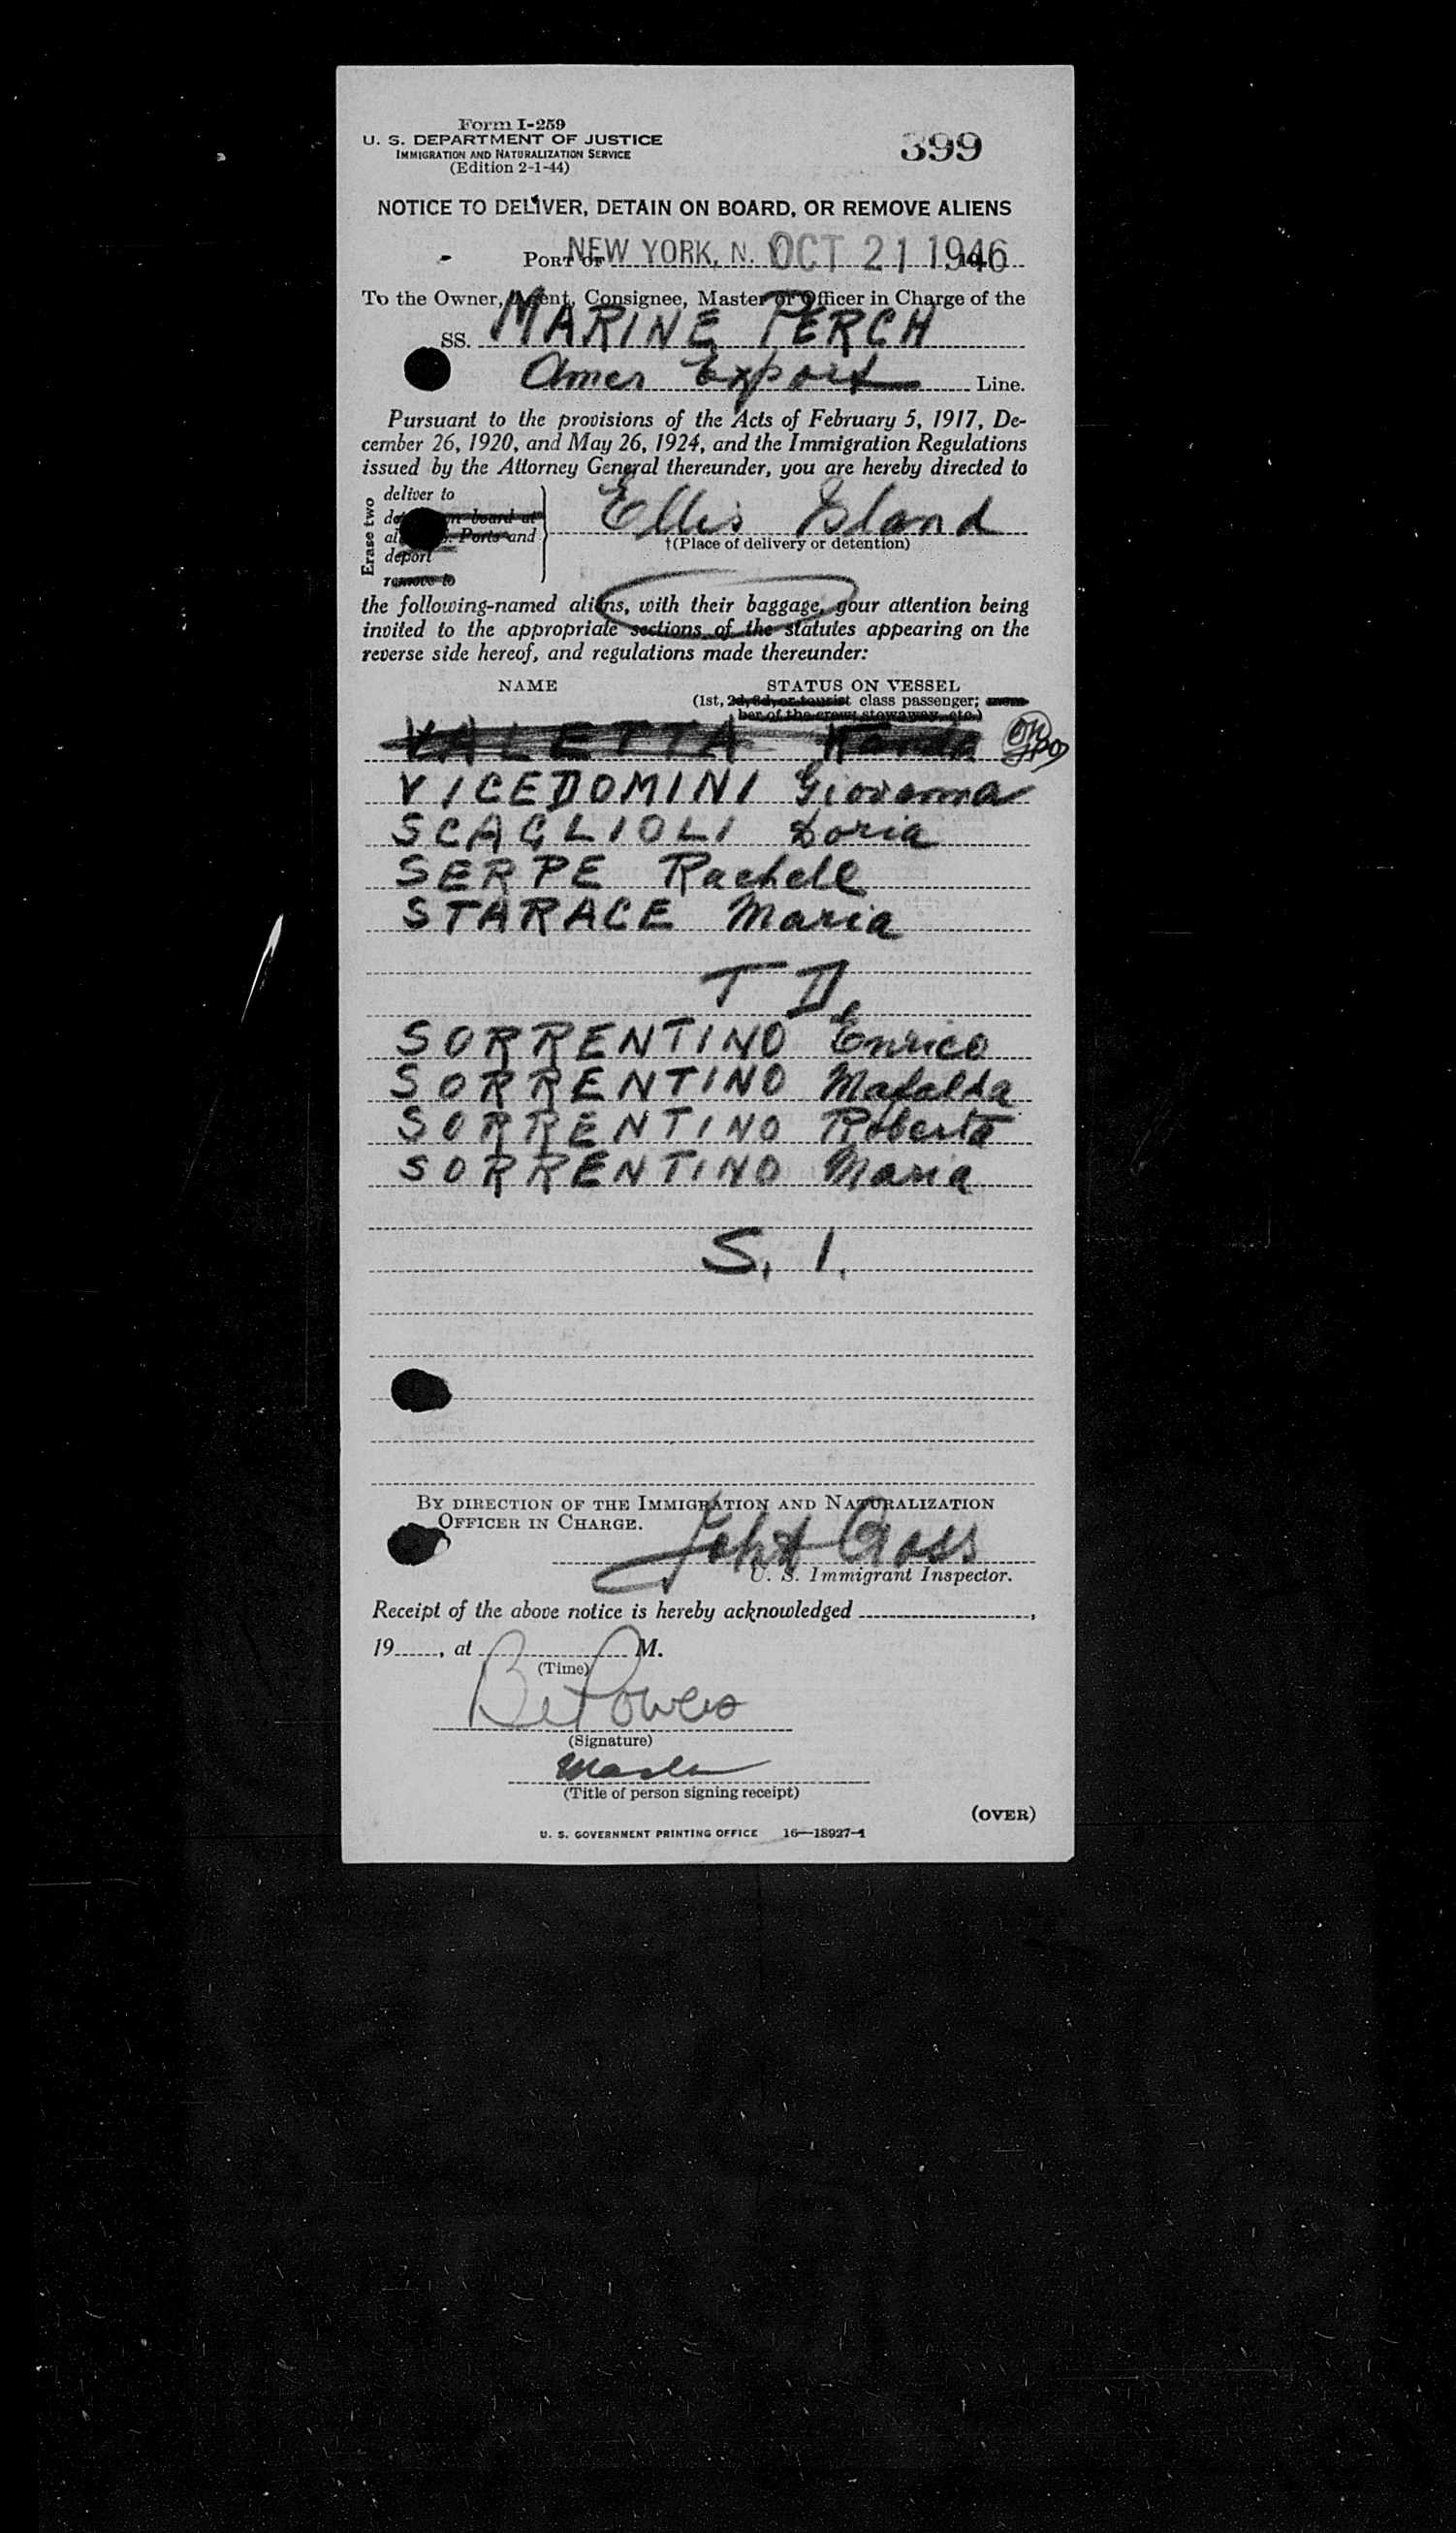 Form I-259
U. S. DEPARTMENT OF JUSTICE
IMMIGRATION AND NATURALIZATION SERVICE
(Edition 2-1-44)
399
NOTICE TO DELIVER, DETAIN ON BOARD, OR REMOVE ALIENS
PORT OF NEW YORK, N. Y. OCT 21 1946
To the Owner, Agent, Consignee, Master or Officer in Charge of the
SS. MARINE PERCH
Amer Export Line.
Pursuant to the provisions of the Acts of February 5, 1917, De-
cember 26, 1920, and May 26, 1924, and the Immigration Regulations
issued by the Attorney General thereunder, you are hereby directed to
Erase two
deliver to
board at
Ports and
deport
remove to
Ellis Island
†(Place of delivery or detention)
the following-named aliens, with their baggage, your attention being
invited to the appropriate sections of the statutes appearing on the
reverse side hereof, and regulations made thereunder:
NAME STATUS ON VESSEL
(1st, 2d, 3d, or tourist class passenger; mem-
ber of the crew; stowaway, etc.)
VALETTA Wanda
VICEDOMINI Giovanna
SCAGLIOLI Doria
SERPE Rachele
STARACE Maria
T D.
SORRENTINO Enrico
SORRENTINO Mafalda
SORRENTINO Roberto
SORRENTINO Maria
S. I.
BY DIRECTION OF THE IMMIGRATION AND NATURALIZATION
OFFICER IN CHARGE.
U. S. Immigrant Inspector.
Receipt of the above notice is hereby acknowledged ,
19 , at M.
(Time)
Powers
(Signature)
Master
(Title of person signing receipt)
(OVER)
U. S. GOVERNMENT PRINTING OFFICE 16—18927-1